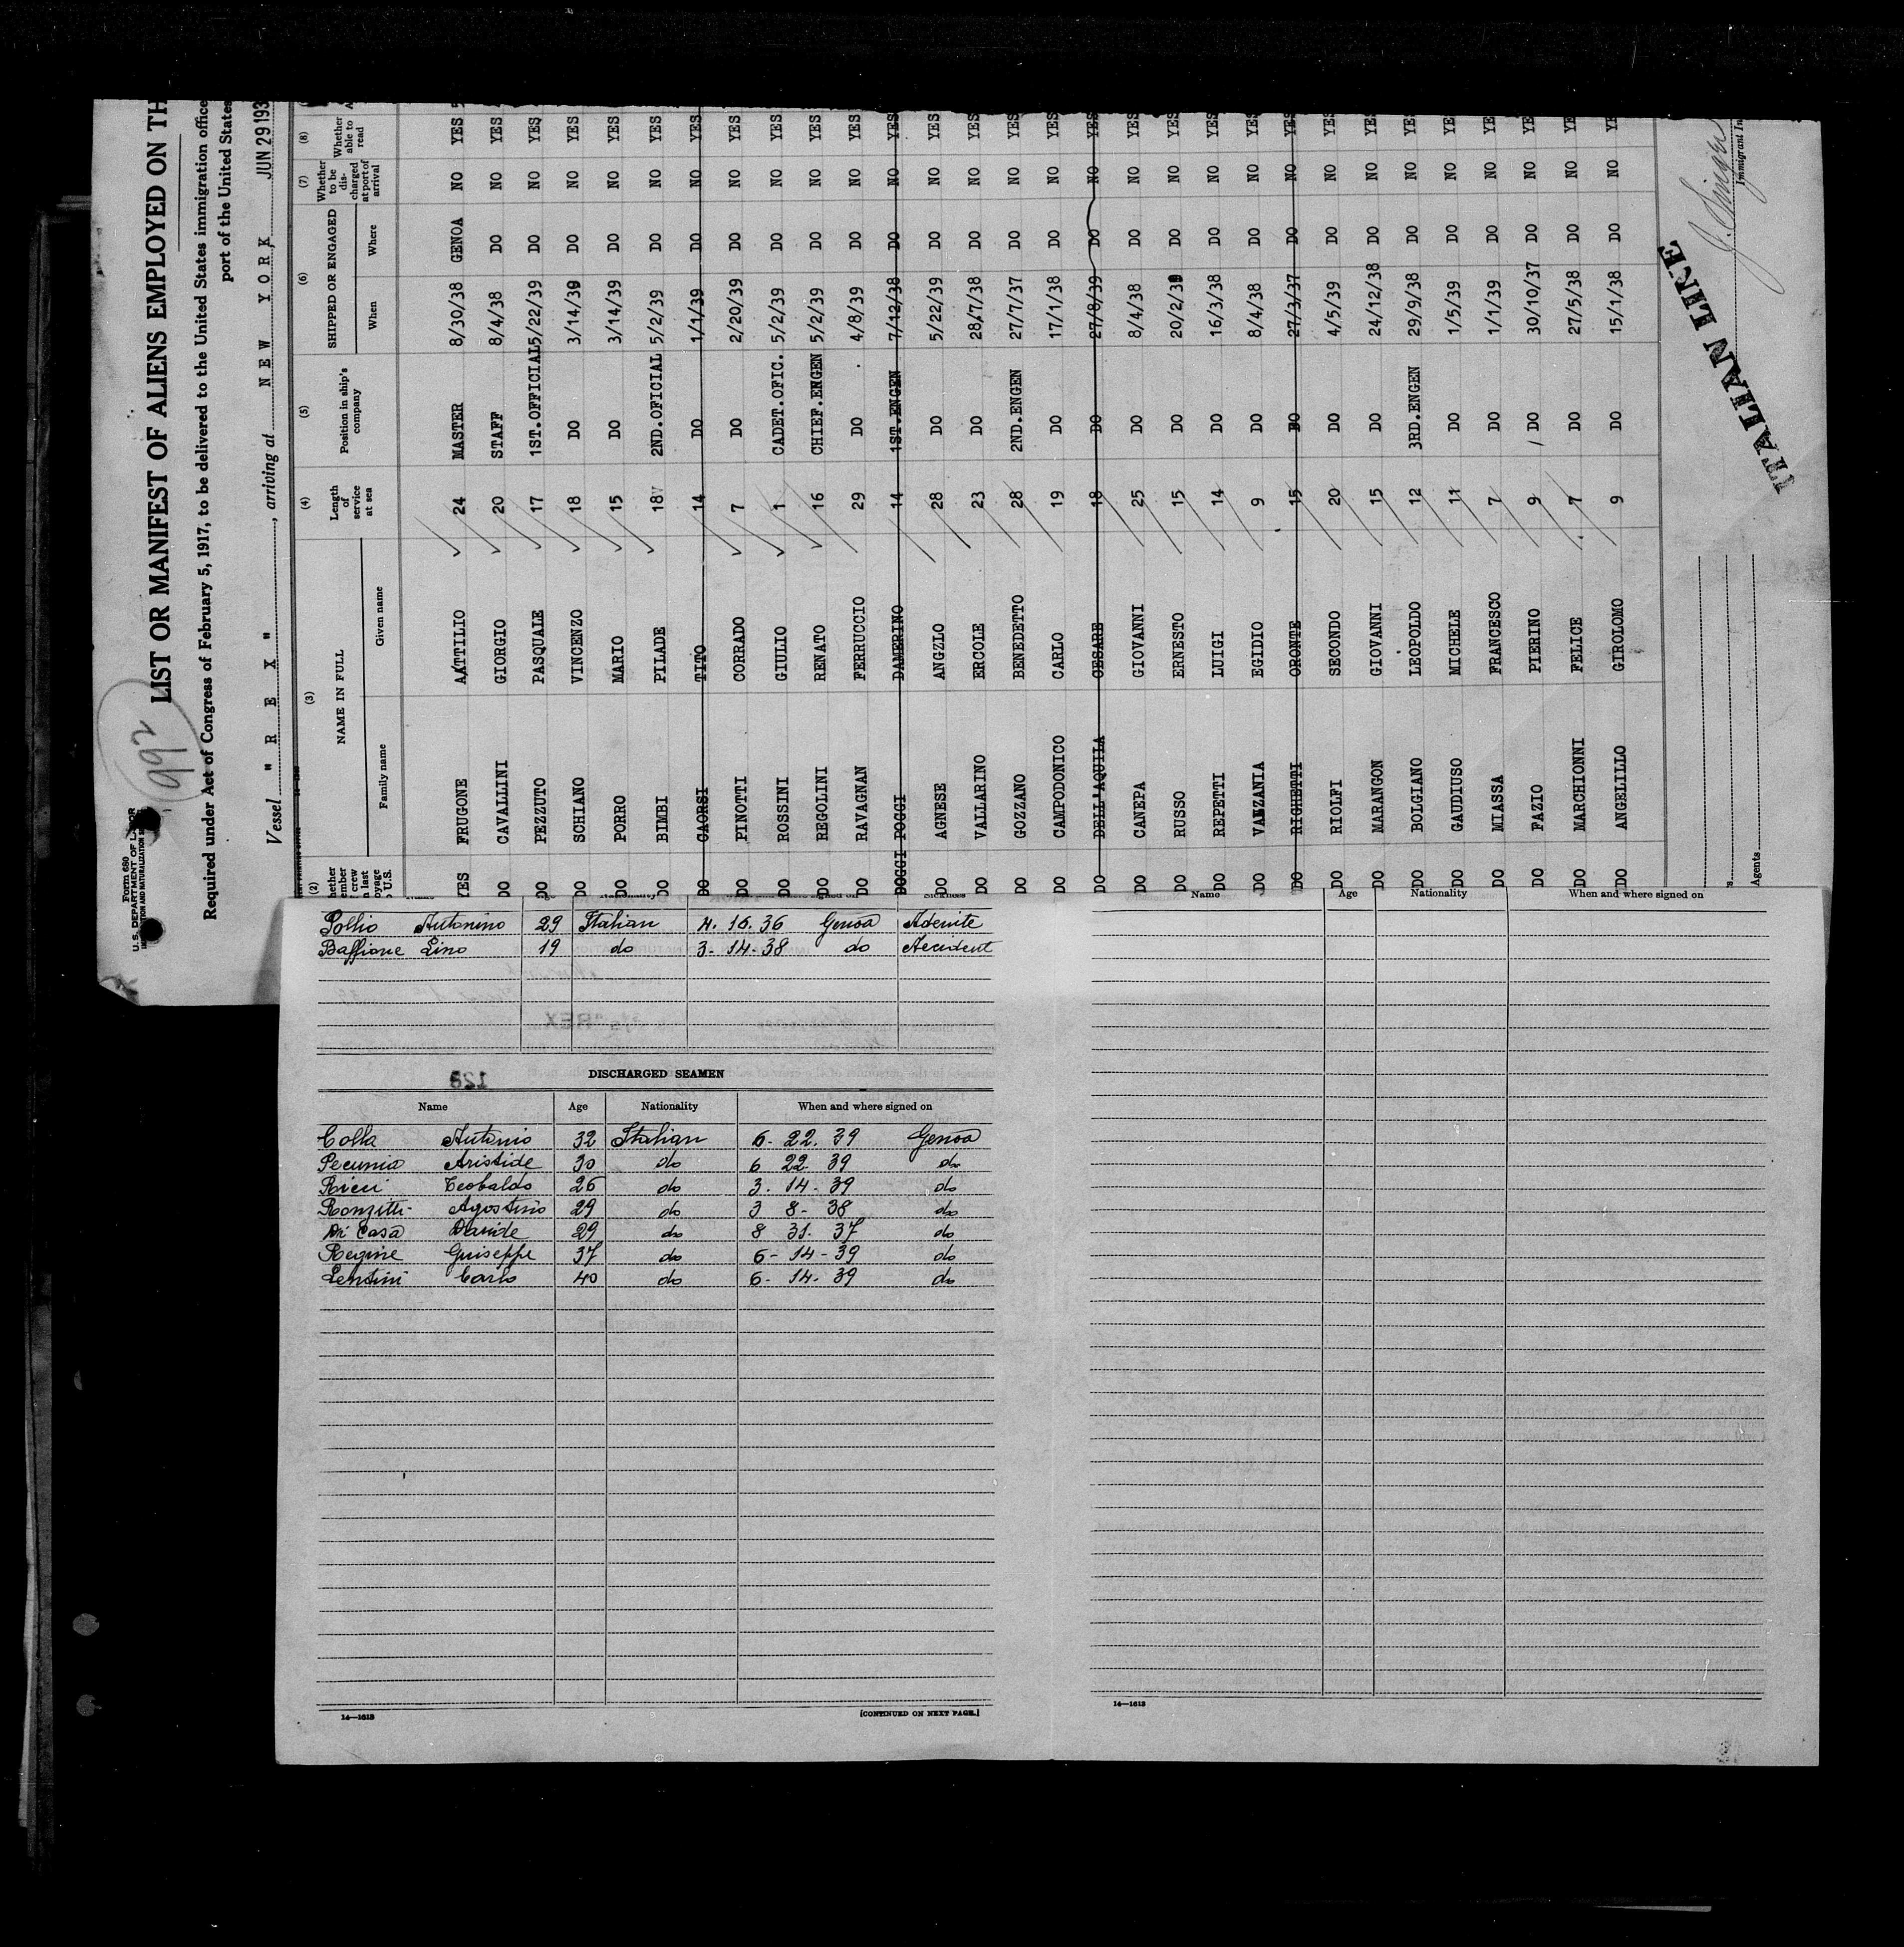 Form 680
U. S. DEPARTMENT OF LABOR
992
LIST OR MANIFEST OF ALIENS EMPLOYED ON TH
Required under Act of Congress of February 5, 1917, to be delivered to the United States immigration office
port of the United States
Vessel " R E X " , arriving at NEW YORK JUN 29 193
(2) (3) (4) (5) (6) (7) (8)
NAME IN FULL Length of service at sea Position in ship's company SHIPPED OR ENGAGED Whether to be discharged at port of arrival Whether able to read
Family name Given name When Where
YES FRUGONE AATTILIO 24 MASTER 8/30/38 GENOA NO YES
DO CAVALLINI GIORGIO 20 STAFF 8/4/38 DO NO YES
DO PEZZUTO PASQUALE 17 1ST.OFFICIAL 5/22/39 DO NO YES
DO SCHIANO VINCENZO 18 DO 3/14/39 DO NO YES
DO PORRO MARIO 15 DO 3/14/39 DO NO YES
DO BIMBI PILADE 18 2ND.OFICIAL 5/2/39 DO NO YES
DO CAORSI TITO 14 DO 1/1/39 DO NO YES
DO PINOTTI CORRADO 7 DO 2/20/39 DO NO YES
DO ROSSINI GIULIO 1 CADET.OFIC. 5/2/39 DO NO YES
DO REGGOLINI RENATO 16 CHIEF.ENGEN 5/2/39 DO NO YES
DO RAVAGNAN FERRUCCIO 29 DO 4/8/39 DO NO YES
POGGI POGGI DAMERINO 14 1ST.ENGEN 7/12/38 DO NO YES
DO AGNESE ANGZLO 28 DO 5/22/39 DO NO YES
DO VALLARINO ERCOLE 23 DO 28/7/38 DO NO YES
DO GOZZANO BENEDETTO 28 2ND.ENGEN 27/7/37 DO NO YES
DO CAMPODONICO CARLO 19 DO 17/1/38 DO NO YES
DO DELL'AQUILA CESARE 18 DO 27/8/39 DO NO YES
DO CANEPA GIOVANNI 25 DO 8/4/38 DO NO YES
DO RUSSO ERNESTO 15 DO 20/2/39 DO NO YES
DO REPETTI LUIGI 14 DO 16/3/38 DO NO YES
DO VANZANIA EGIDIO 9 DO 8/4/38 DO NO YES
DO RIGHETTI ORONTE 15 DO 27/3/37 DO NO YES
DO RIOLFI SECONDO 20 DO 4/5/39 DO NO YES
DO MARANGON GIOVANNI 15 DO 24/12/38 DO NO YES
DO BOLGIANO LEOPOLDO 12 3RD.ENGEN 29/9/38 DO NO YES
DO GAUDIUSO MICHELE 11 DO 1/5/39 DO NO YES
DO MIASSA FRANCESCO 7 DO 1/1/39 DO NO YE
DO FAZIO PIERINO 9 DO 30/10/37 DO NO YE
DO MARCHIONNI FELICE 7 DO 27/5/38 DO NO YE
DO ANGELILLO GIROLOMO 9 DO 15/1/38 DO NO YE
ITALIAN LINE
Immigrant In
Agents
Pollio Antonino 29 Italian 4. 16. 36 Genoa Adenite
Baffione Lino 19 do 3- 14- 38 do Accident
DISCHARGED SEAMEN
Name Age Nationality When and where signed on
Colla Antonio 32 Italian 6- 22. 39 Genoa
Pecunia Aristide 30 do 6 22. 39 do
Ricci Teobaldo 26 do 3. 14. 39 do
Ronzitti Agostino 29 do 3 8- 38 do
Di Casa Davide 29 do 8 31. 37 do
Regine Guiseppe 37 do 6- 14- 39 do
Lentini Carlo 40 do 6- 14. 39 do
14—1613 [CONTINUED ON NEXT PAGE.]
Name Age Nationality When and where signed on
14—1613